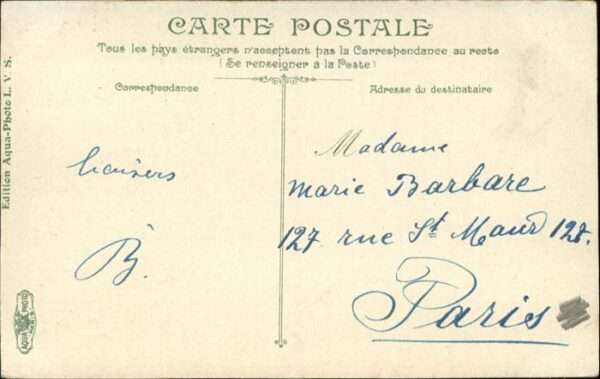 CARTE POSTALE
Tous les pays étrangers n'acceptent pas la Correspondance au recto
(Se renseigner à la Poste)
Correspondance
Adresse du destinataire
Edition Aqua-Photo L. V. S.
baisers
B.
Madame
Marie Barbare
127 rue St Maur 127.
Paris
AQUA PHOTO